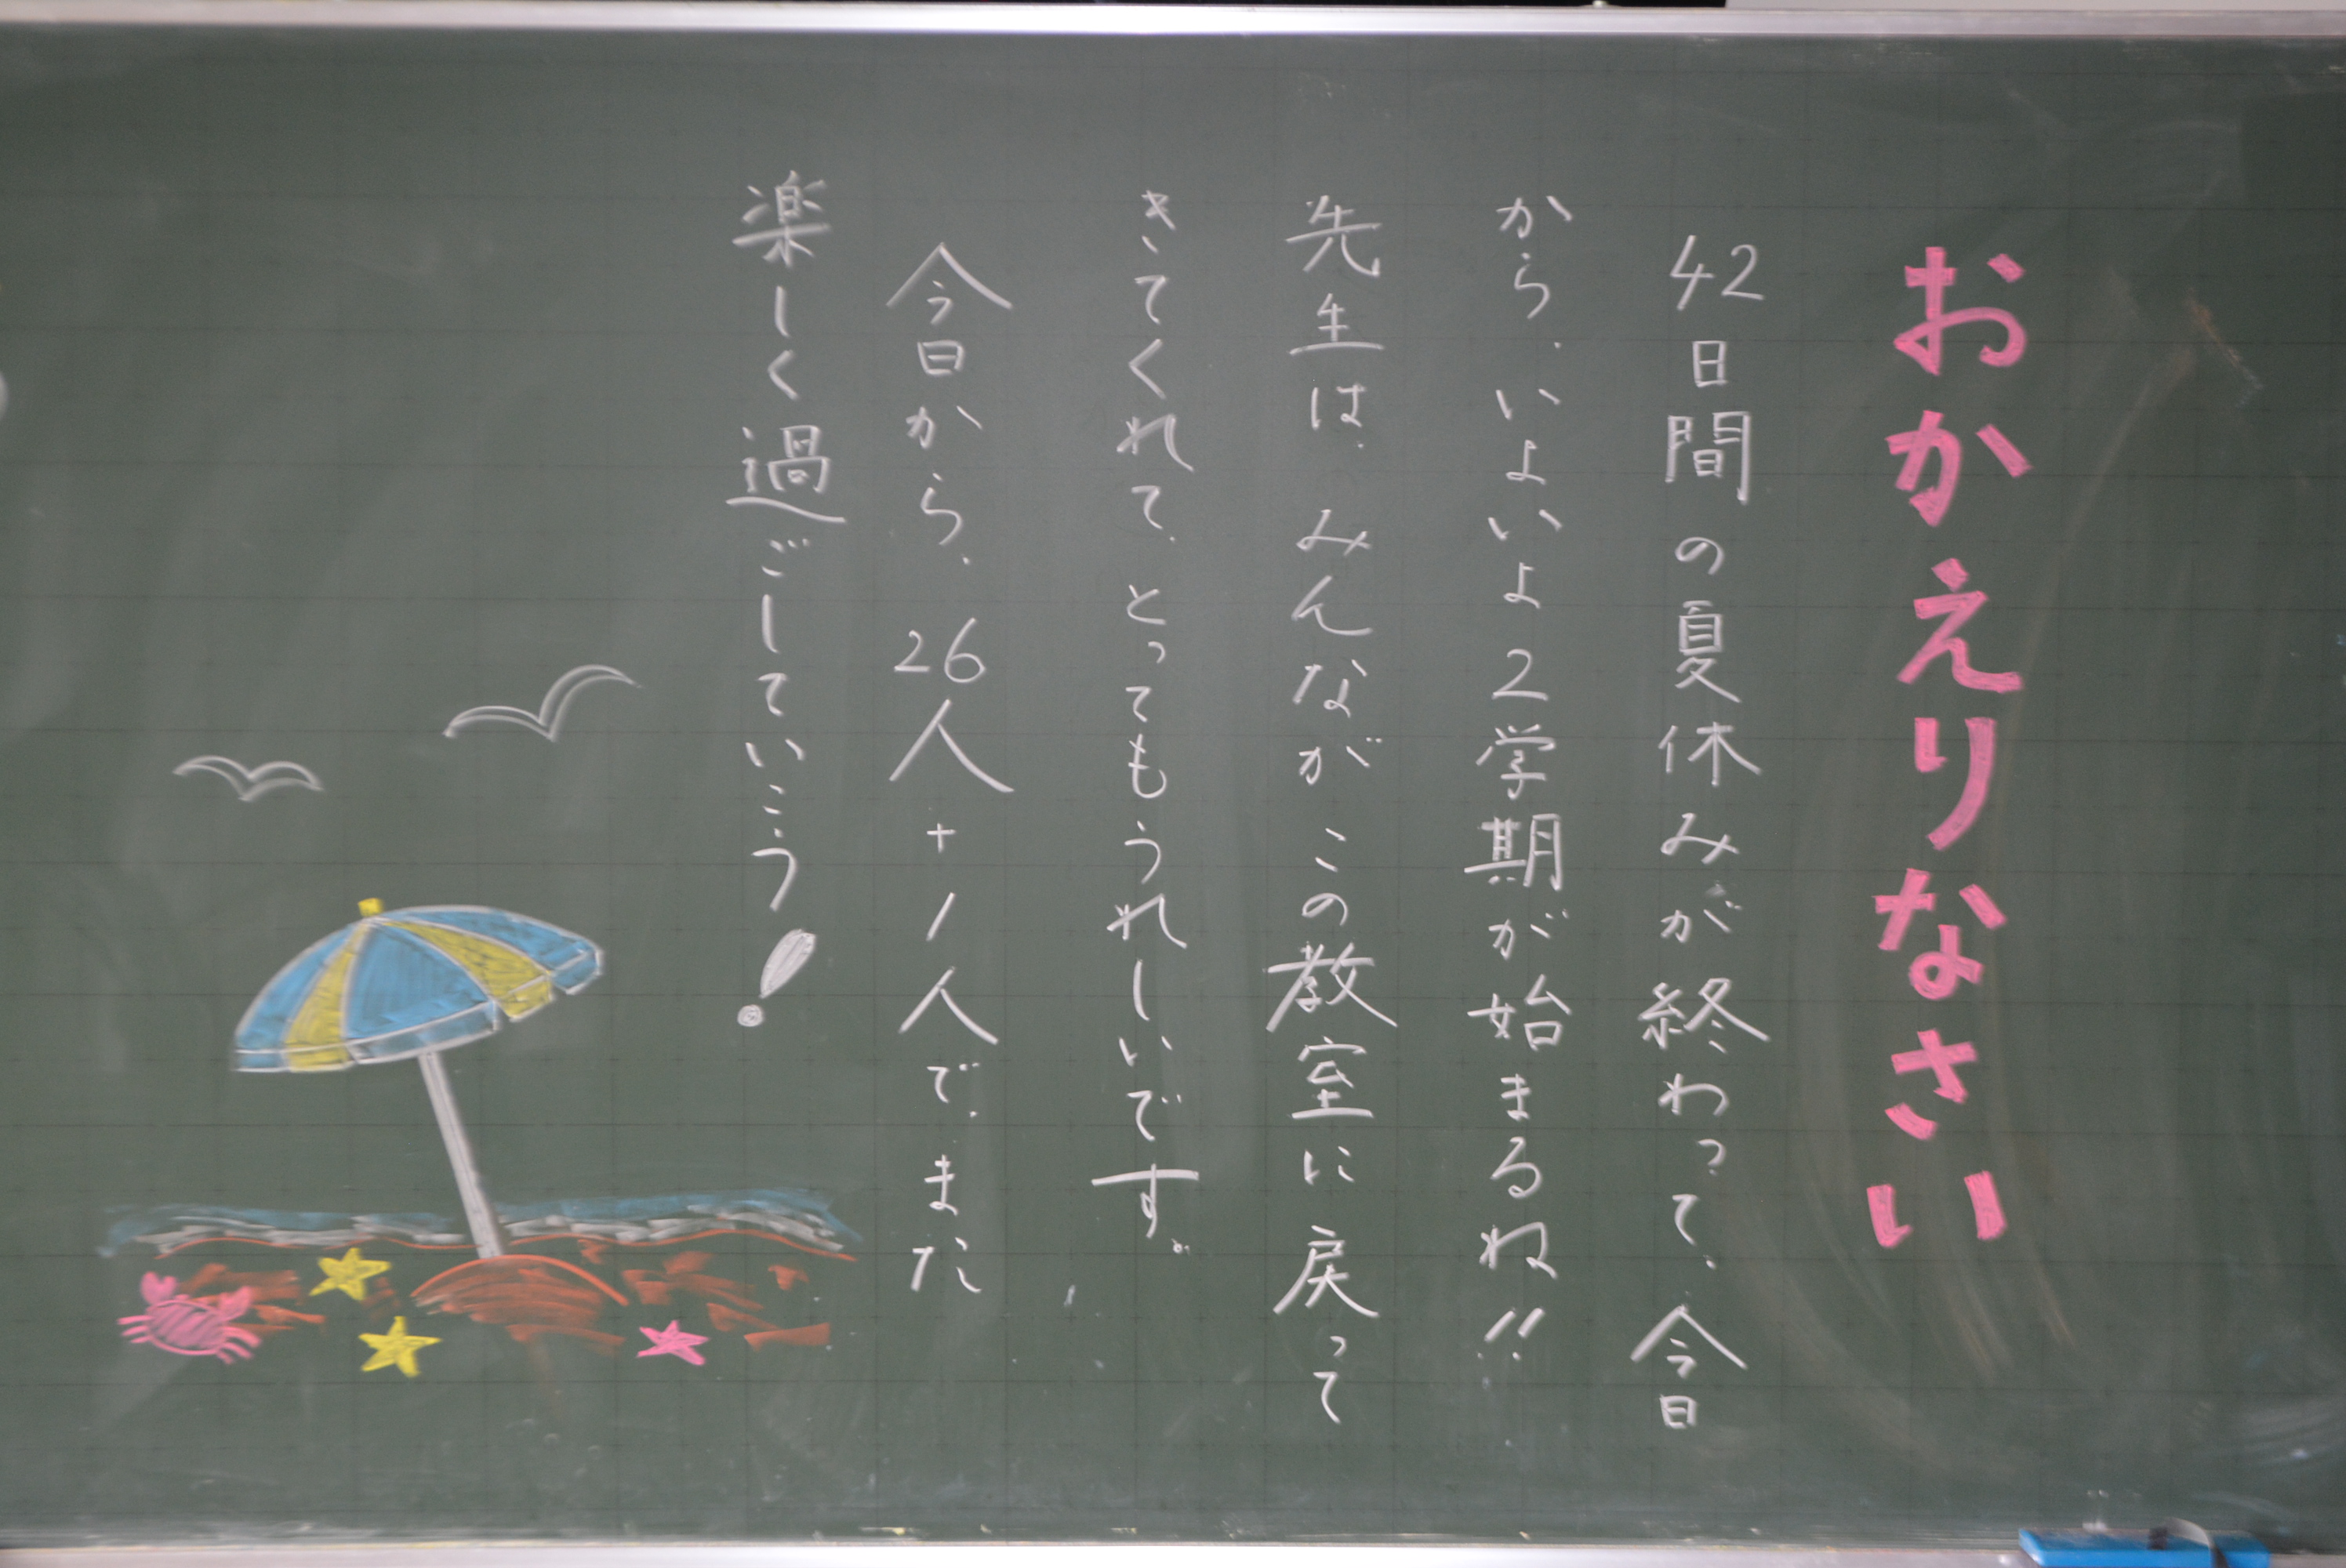 おかえりなさい
42日間の夏休みが終わって、今日
から、いよいよ2学期が始まるね!!
先生は、みんなが この教室に 戻って
きてくれて、とってもうれしいです。
今日から、26人+1人で、また
楽しく過ごしていこう!